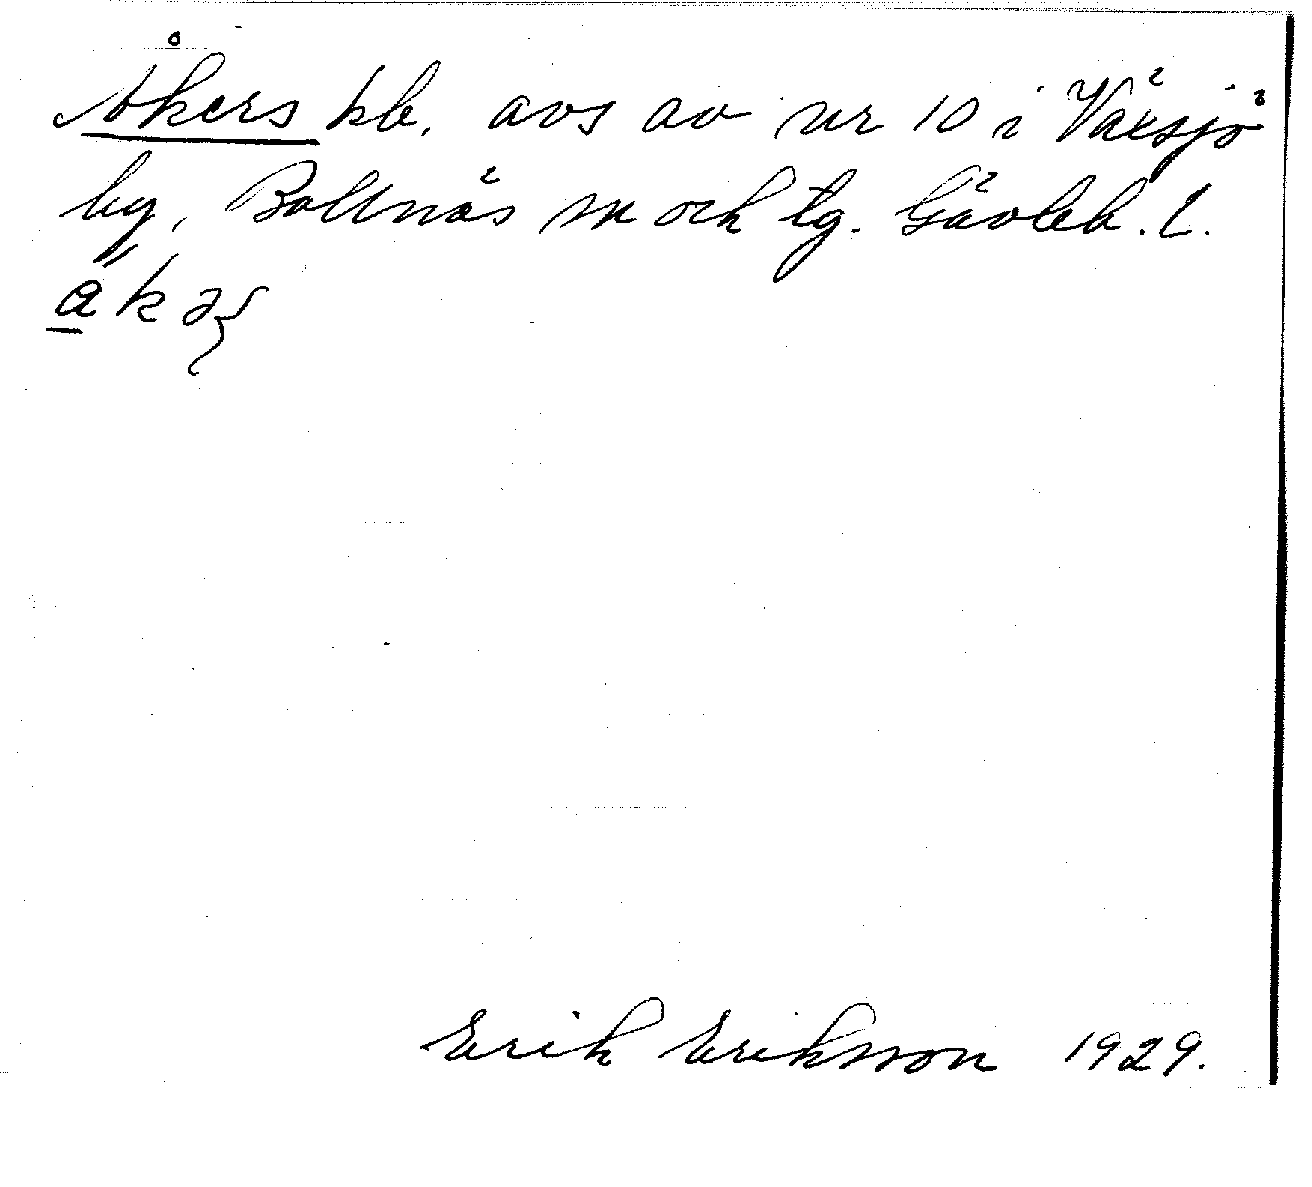 Åkers hb. avs av nr 10 i Växsjö
by, Bollnäs sn och tg. Gävleb. l.
Erik Eriksson 1929.